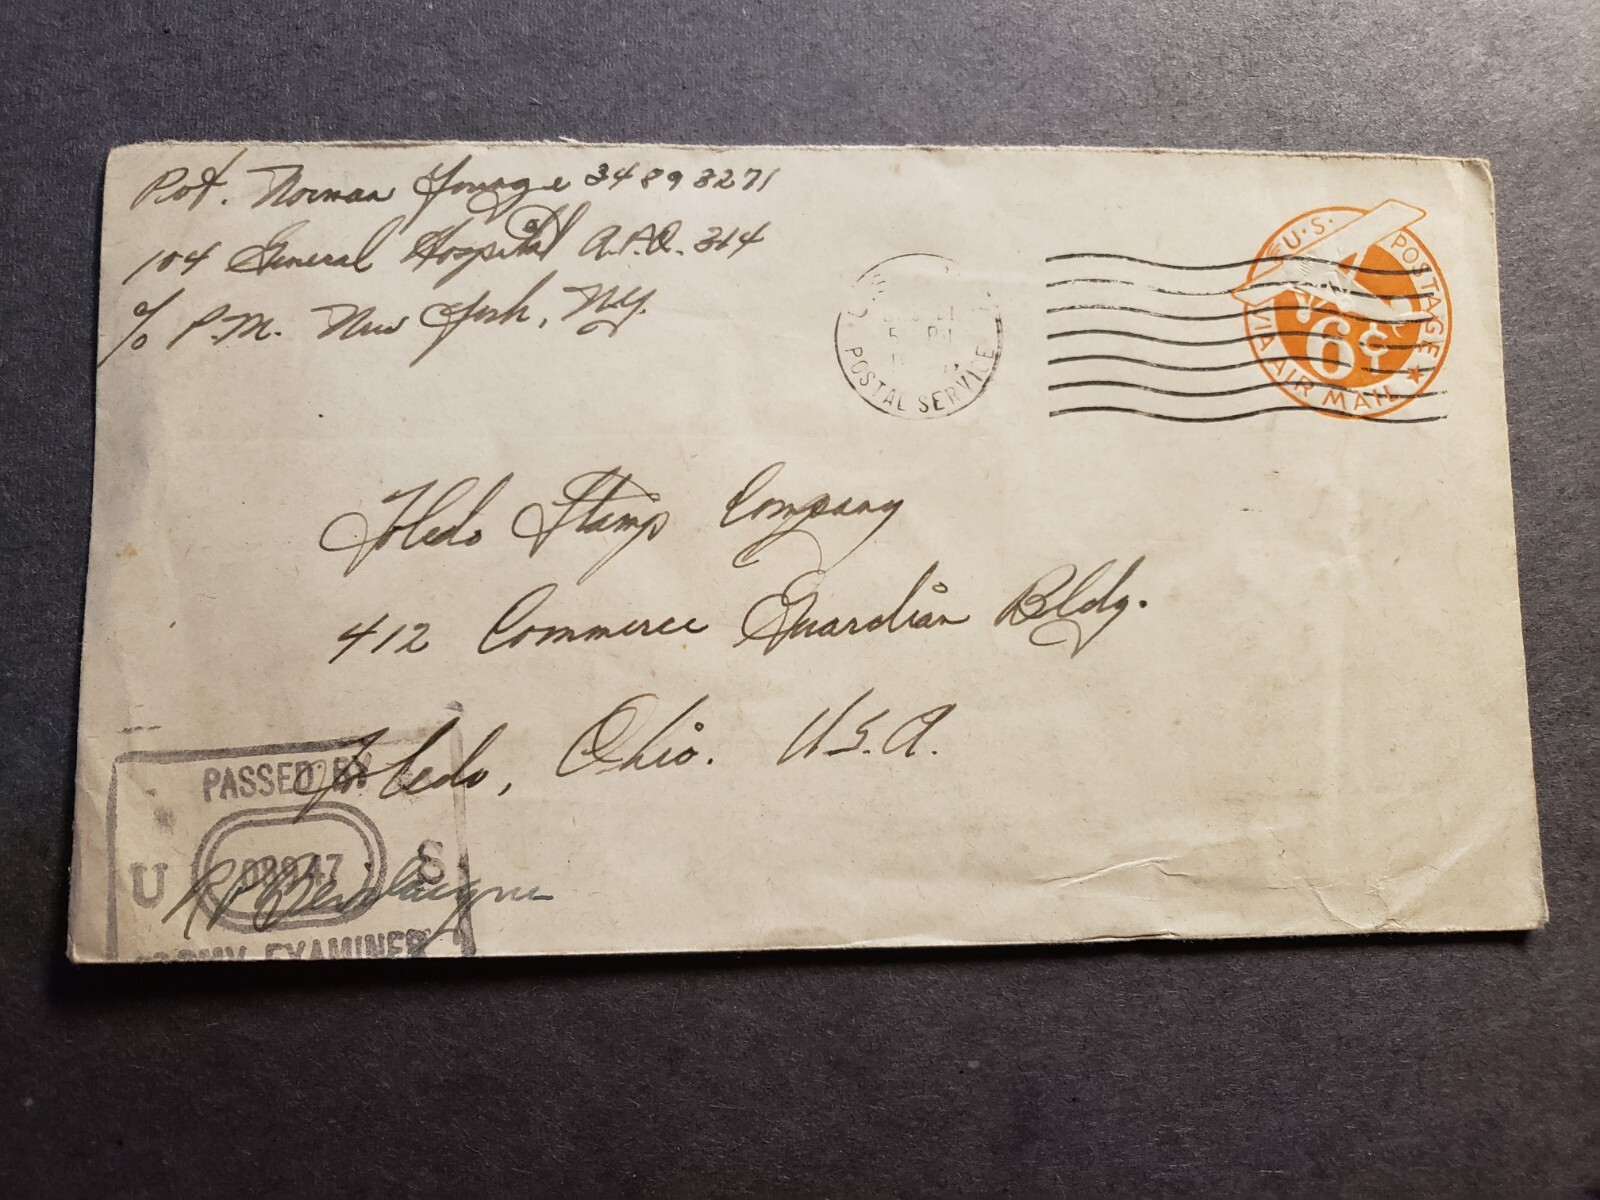 Pvt. Norman Younge 34893271
104 General Hospital A.P.O. 314
c/o P.M. New York, N.Y.
U.S. POSTAGE
6¢
VIA AIR MAIL
5 PM
POSTAL SERVICE
Toledo Stamp Company
412 Commerce Guardian Bldg.
Toledo, Ohio. U.S.A.
PASSED BY
U S
ARMY EXAMINER